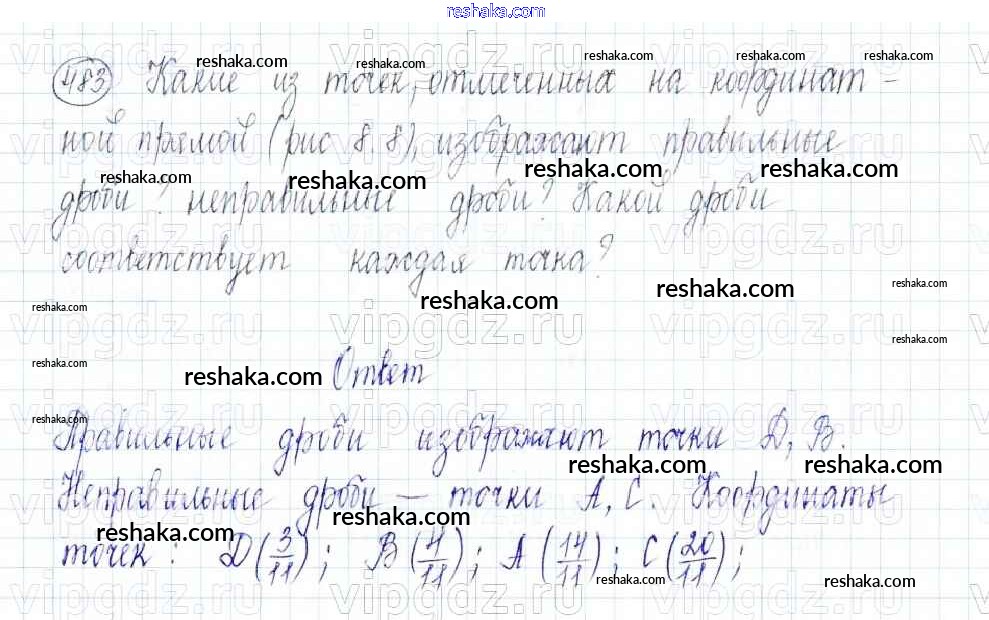 reshaka.com
483 Какие из точек, отмеченных на координат-
ной прямой (рис 8.8), изображают правильные
дроби? неправильные дроби? Какой дроби
соответствует каждая точка?
Ответ
Правильные дроби изображают точки D, B.
Неправильные дроби – точки A, C. Координаты
точек: D(3/11); B(4/11); A(14/11); C(20/11);